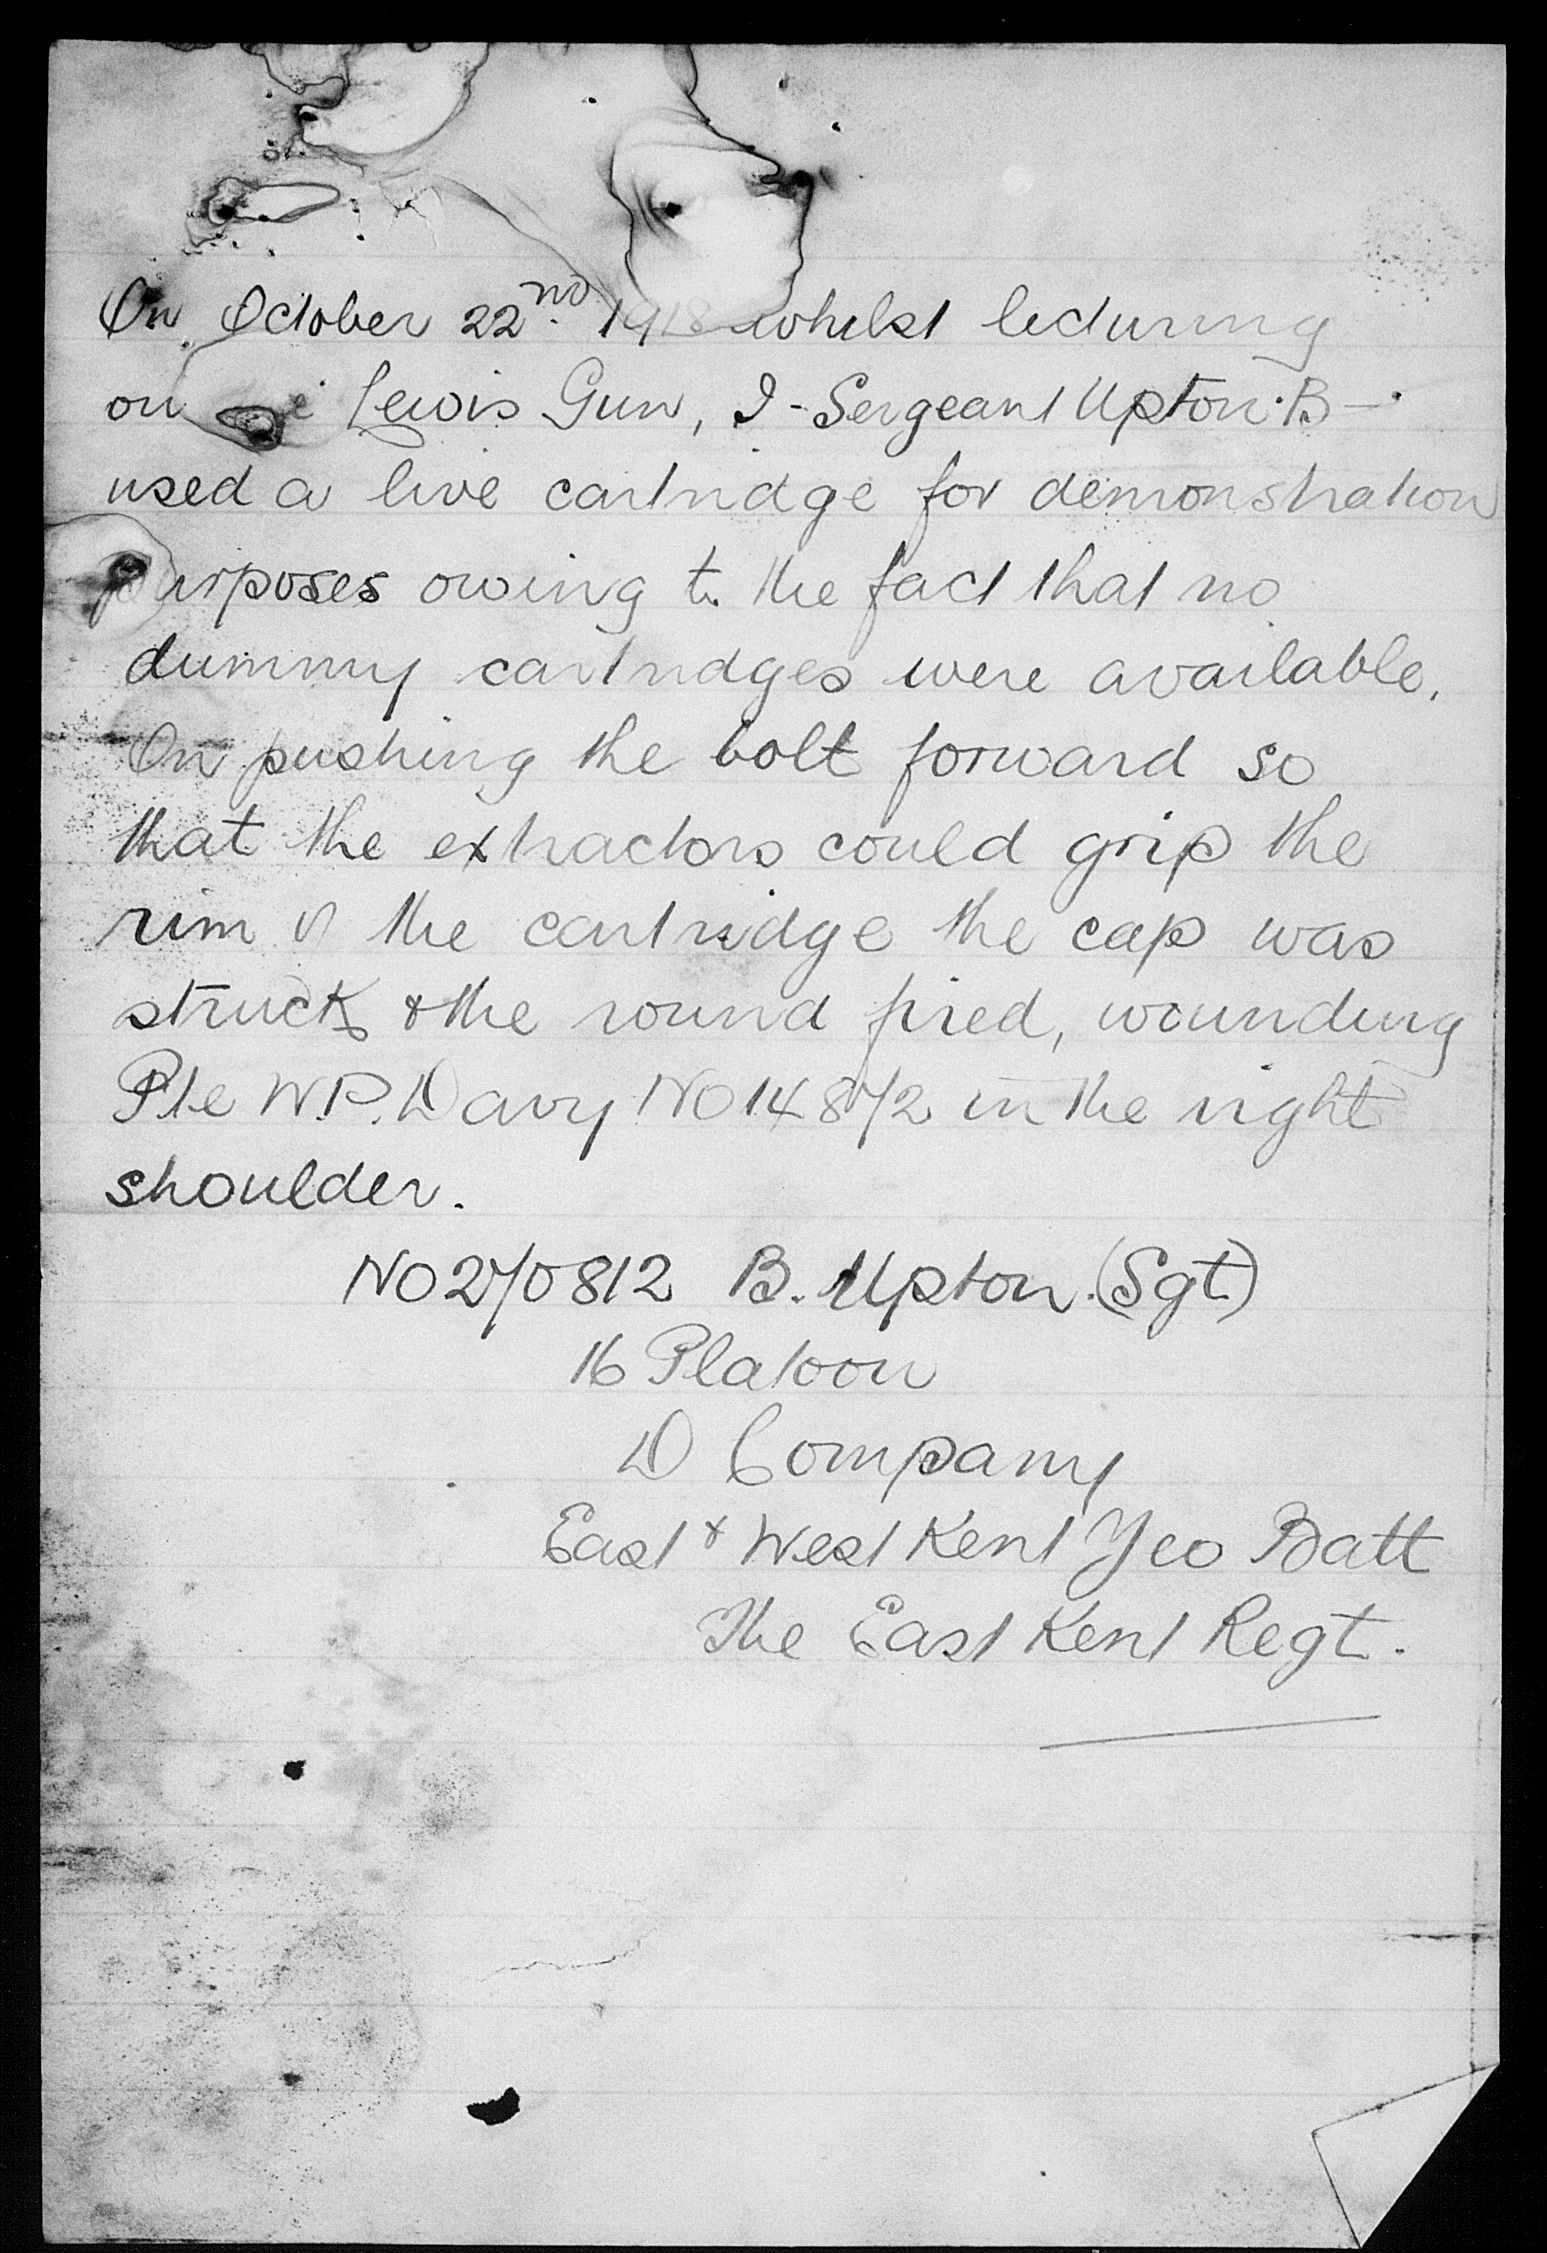 On October 22nd. 1918 whilst lecturing
on Lewis Gun, I - Sergeant Upton. B -
used a live cartridge for demonstration
purposes owing to the fact that no
dummy cartridges were available.
On pushing the bolt forward so
that the extractors could grip the
rim of the cartridge the cap was
struck & the round fired, wounding
Pte W.P. Davy No 14872 in the right
shoulder.
No 270812 B. Upton. (Sgt)
16 Platoon
D Company
East & West Kent Yeo Batt
The East Kent Regt.